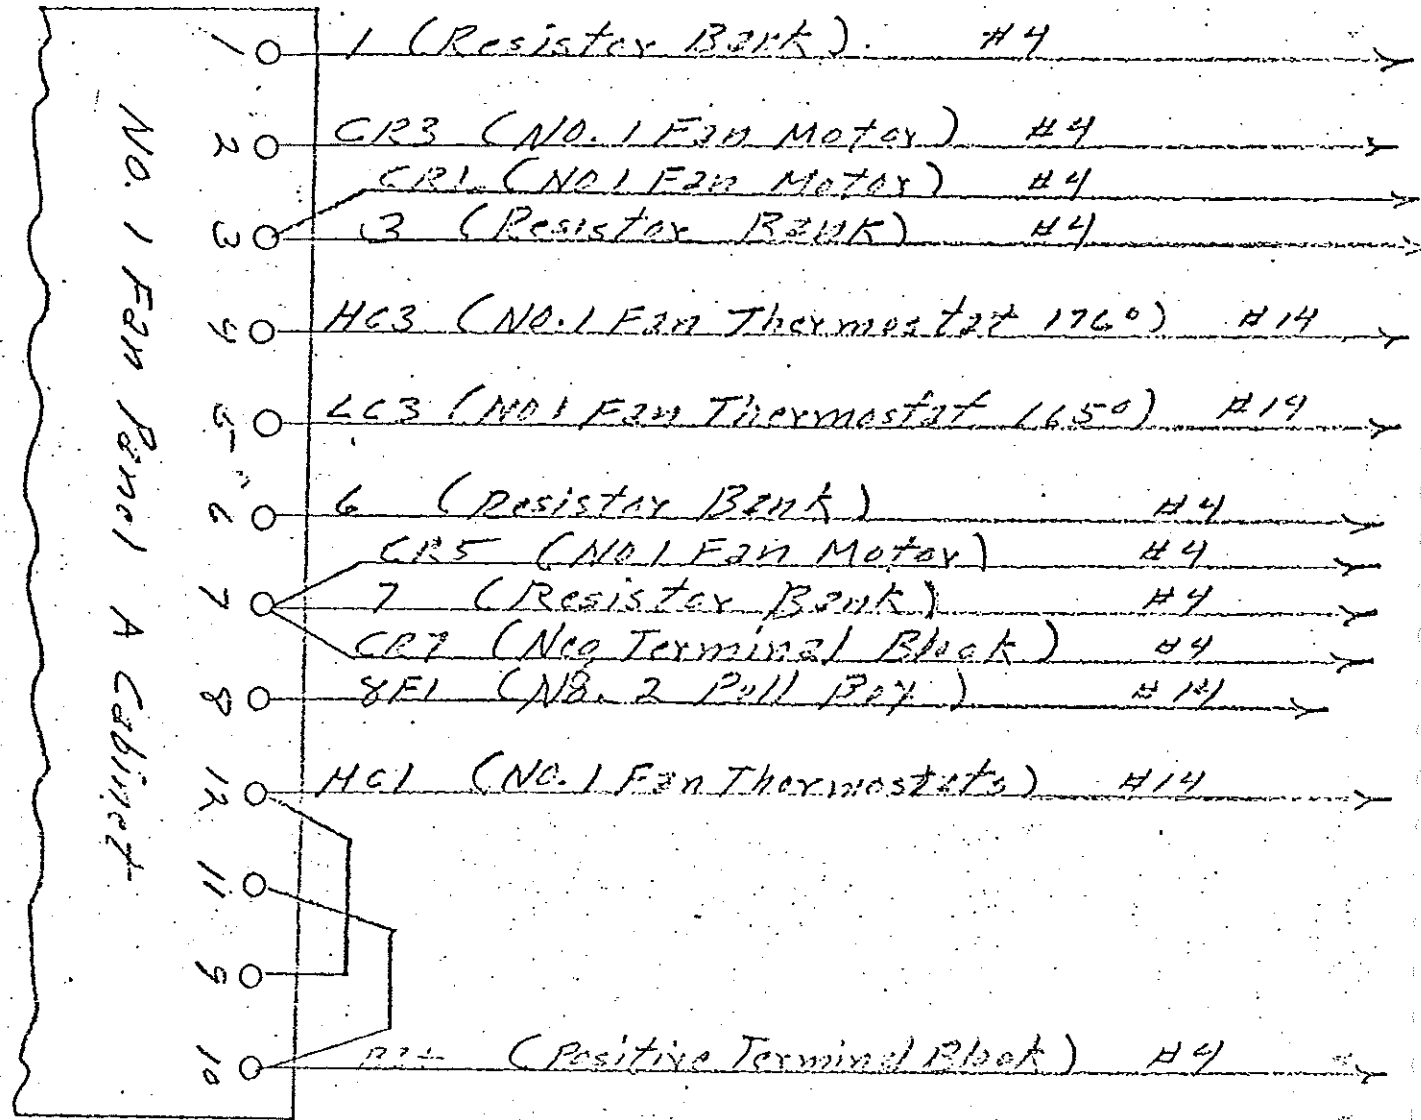 No. 1 Fan Panel A Cabinet
1 1 (Resistor Bank). #4
2 CR3 (NO. 1 Fan Motor) #4
CR1 (NO 1 Fan Motor) #4
3 3 (Resistor Bank) #4
4 HC3 (NO. 1 Fan Thermostat 176°) #14
5 LC3 (NO 1 Fan Thermostat 165°) #14
6 6 (Resistor Bank) #4
CR5 (NO. 1 Fan Motor) #4
7 7 (Resistor Bank) #4
CR7 (Neg Terminal Block) #4
8 8F1 (NO. 2 Pull Box) #14
12 HC1 (NO. 1 Fan Thermostats) #14
11
9
10 (Positive Terminal Block) #4